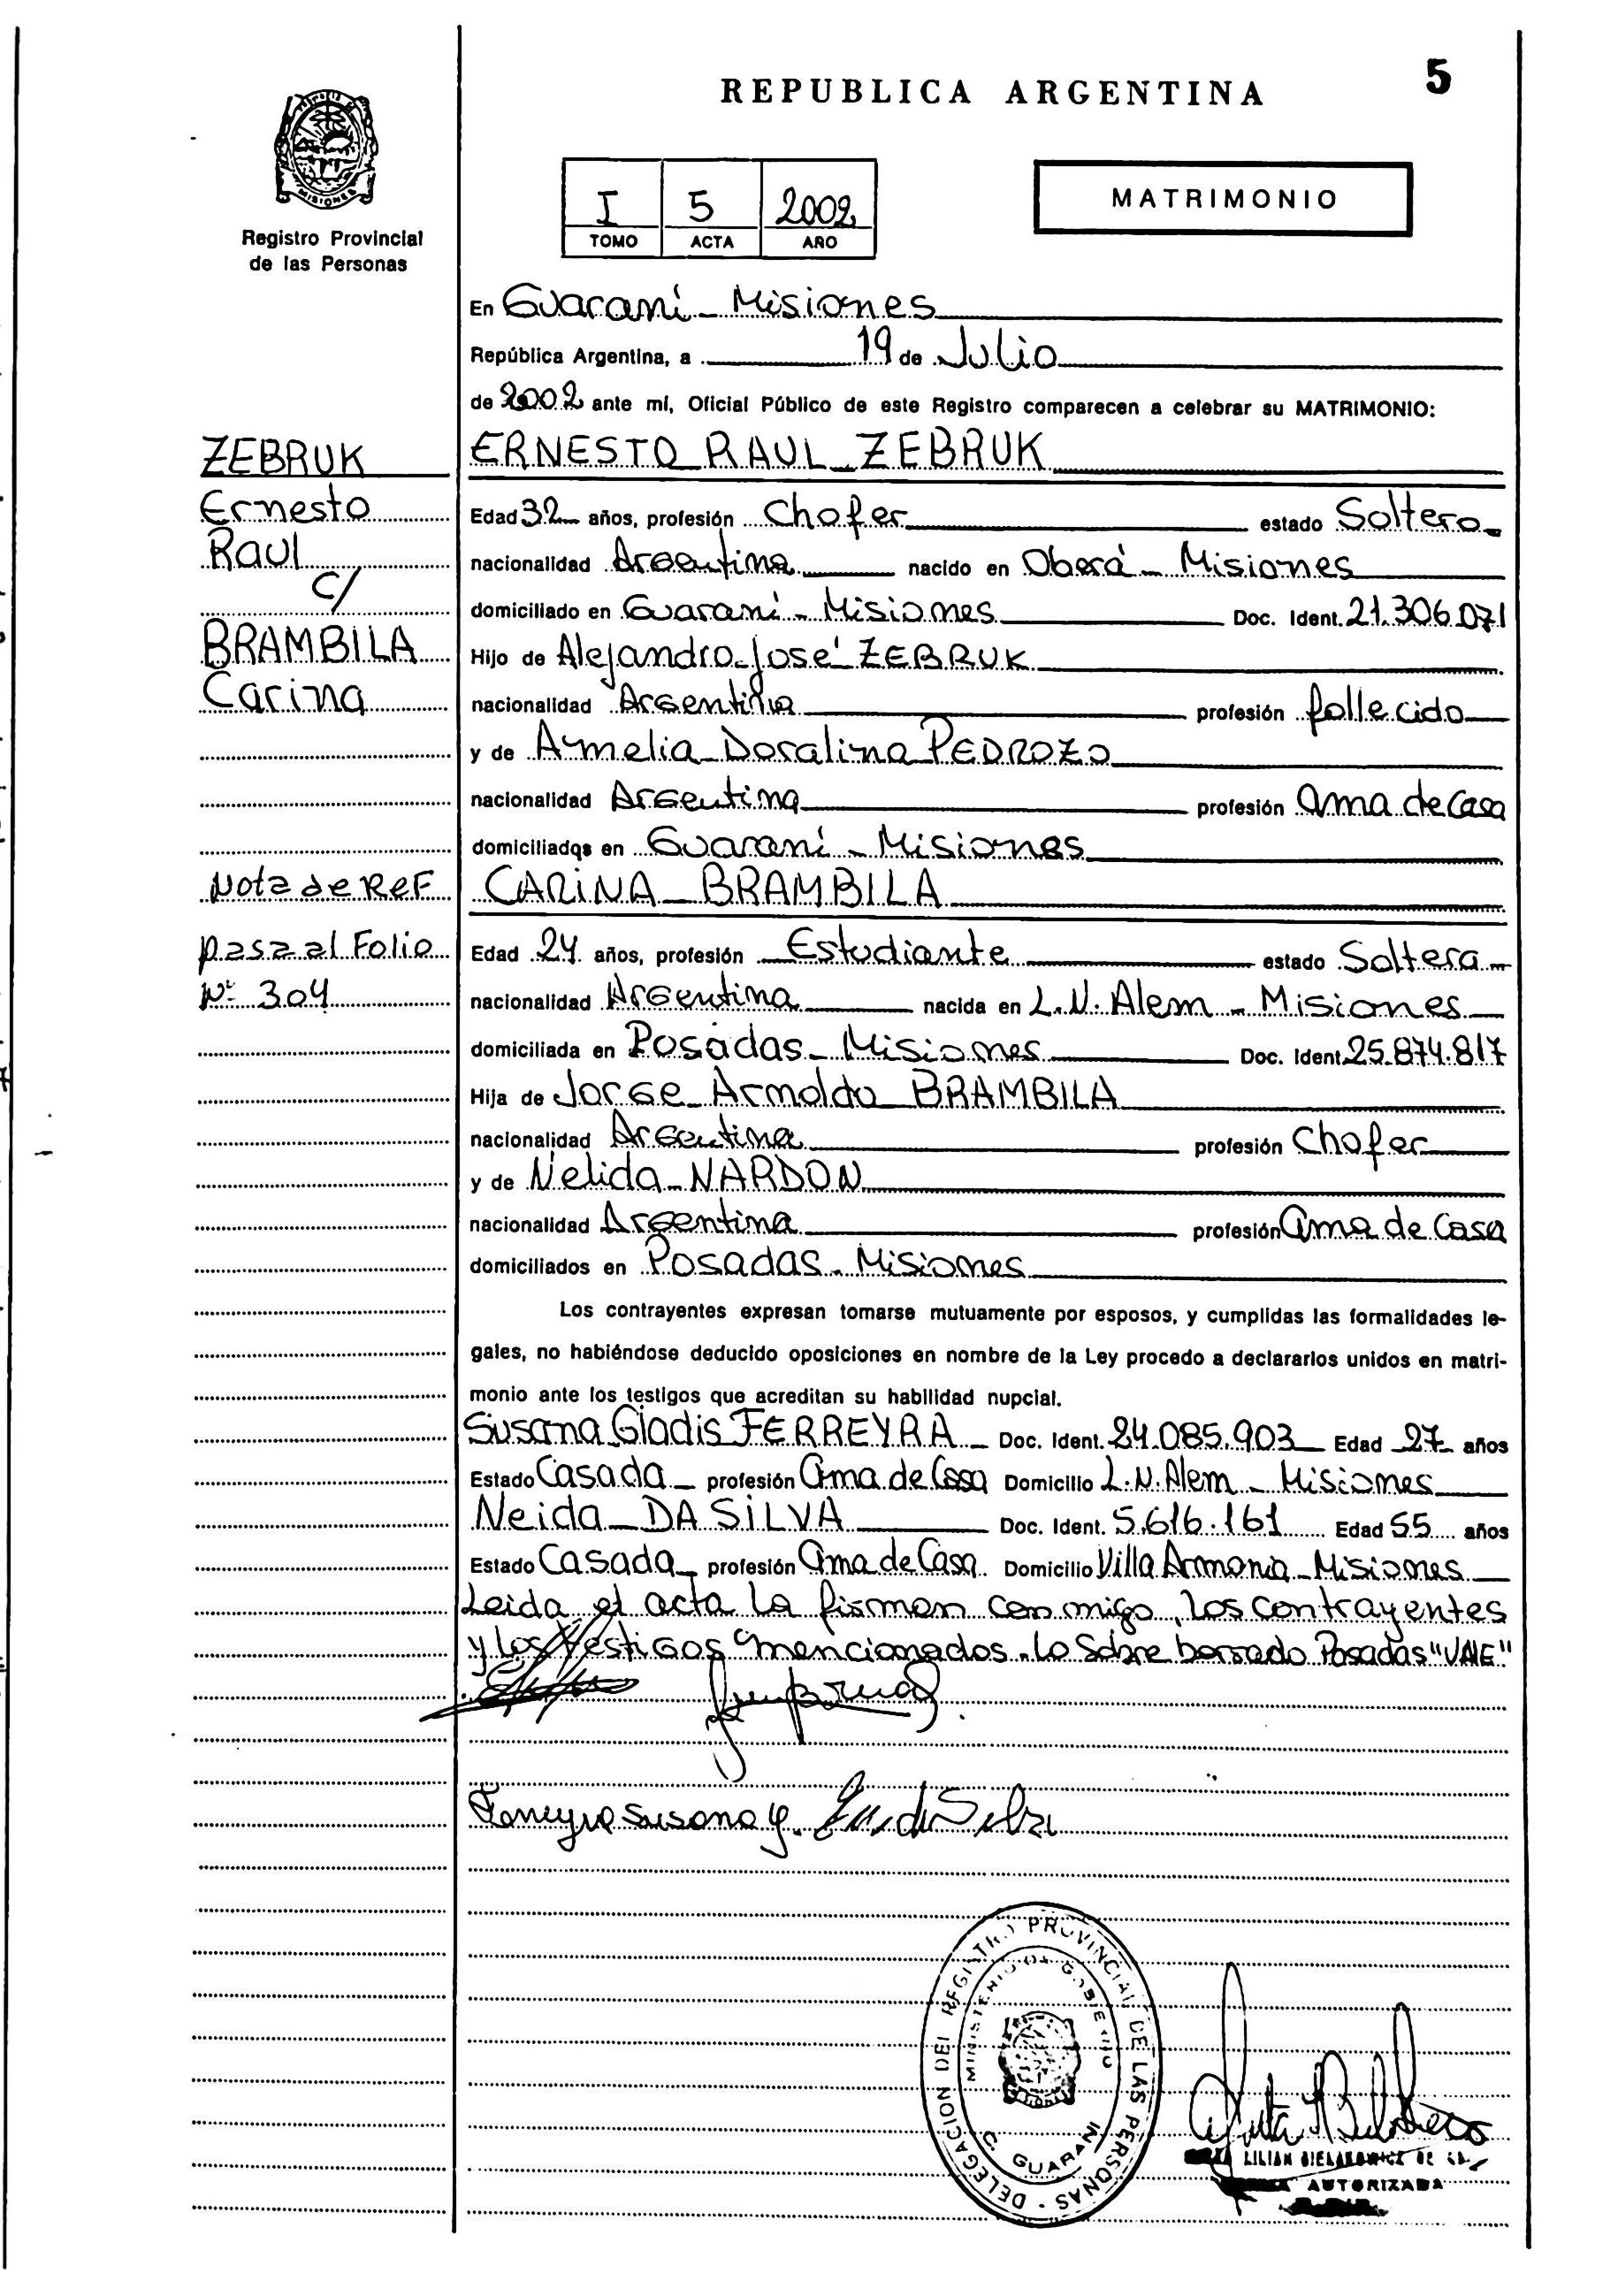 5
REPUBLICA ARGENTINA
MISIONES
Registro Provincial
de las Personas
I 5 2002
TOMO ACTA AÑO
MATRIMONIO
En Guaraní - Misiones
República Argentina, a 19 de Julio
de 2002 ante mí, Oficial Público de este Registro comparecen a celebrar su MATRIMONIO:
ZEBRUK
Ernesto
Raul
c/
BRAMBILA
Carina
Nota de Ref
pasa al Folio
Nº 304
ERNESTO RAUL ZEBRUK
Edad 32 años, profesión Chofer estado Soltero
nacionalidad Argentina nacido en Oberá - Misiones
domiciliado en Guaraní - Misiones Doc. Ident. 21.306.071
Hijo de Alejandro José ZEBRUK
nacionalidad Argentina profesión fallecido
y de Amelia Doralina PEDROZO
nacionalidad Argentina profesión ama de casa
domiciliados en Guaraní - Misiones
CARINA BRAMBILA
Edad 24 años, profesión Estudiante estado Soltera
nacionalidad Argentina nacida en L.N. Alem - Misiones
domiciliada en Posadas - Misiones Doc. Ident. 25.874.817
Hija de Jorge Arnoldo BRAMBILA
nacionalidad Argentina profesión Chofer
y de Nelida NARDON
nacionalidad Argentina profesión ama de Casa
domiciliados en Posadas - Misiones
Los contrayentes expresan tomarse mutuamente por esposos, y cumplidas las formalidades le-
gales, no habiéndose deducido oposiciones en nombre de la Ley procedo a declararlos unidos en matri-
monio ante los testigos que acreditan su habilidad nupcial.
Susana Gladis FERREYRA Doc. Ident. 24.085.903 Edad 27 años
Estado Casada profesión ama de Casa Domicilio L.N. Alem - Misiones
Neida DA SILVA Doc. Ident. 5.616.161 Edad 55 años
Estado Casada profesión ama de Casa Domicilio Villa Armonia - Misiones
Leida el acta la firman con migo, los contrayentes
y los testigos mencionados. Lo sobre borrado Posadas "VALE"
Ferreyra Susana G. da Silva
DELEGACION DEL REGISTRO PROVINCIAL DE LAS PERSONAS
MINISTERIO DE GOBIERNO
C. GUARANI
LILIAN BIELAKOWICZ DE
AUTORIZADA